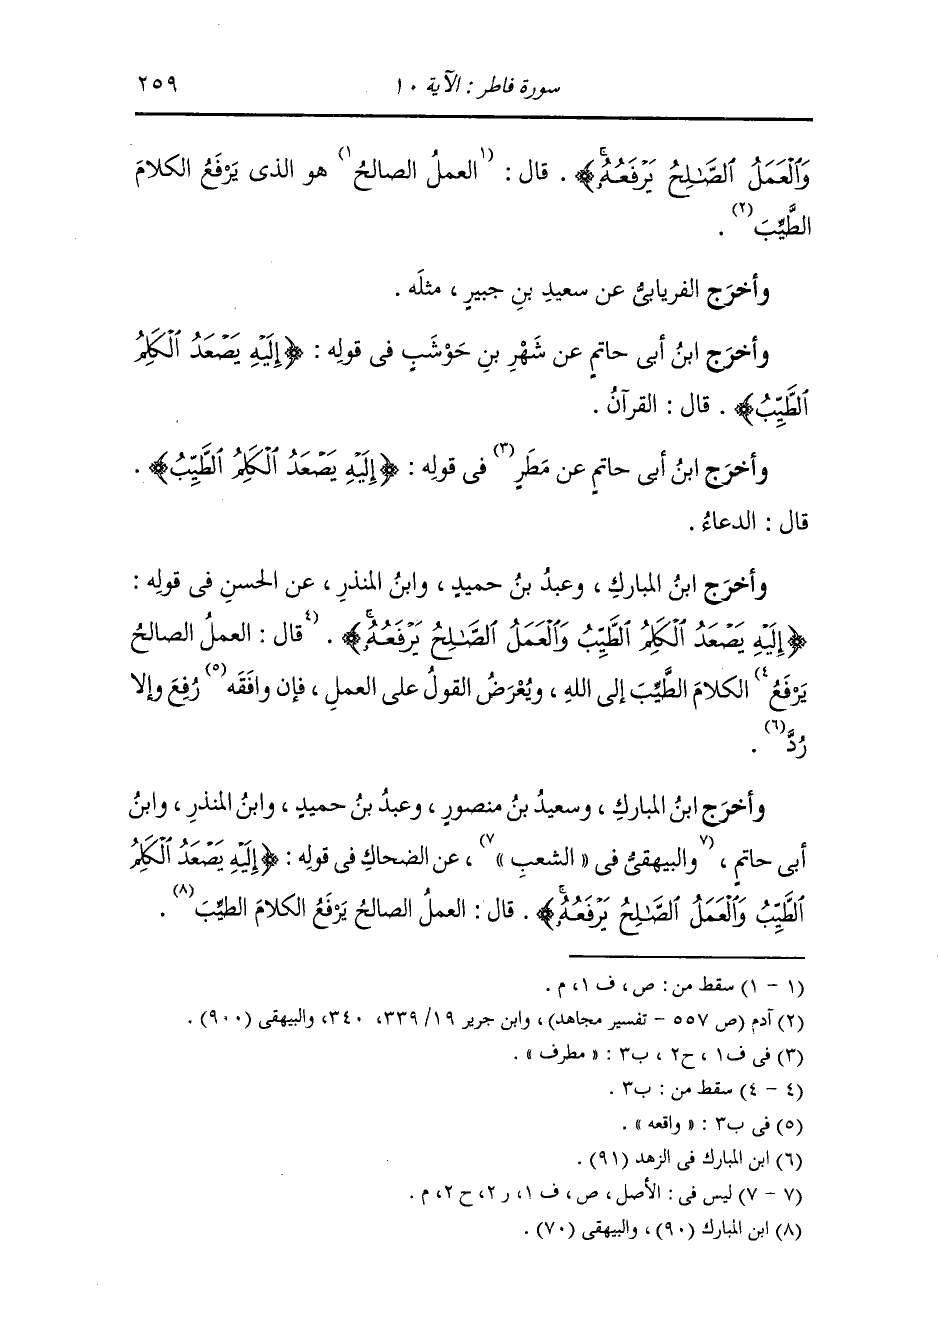 سورة فاطر : الآية ١٠ ٢٥٩
وَٱلْعَمَلُ ٱلصَّـٰلِحُ يَرْفَعُهُۥۚ﴾ . قال : (١العملُ الصالحُ١) هو الذى يَرْفَعُ الكلامَ
الطَّيِّبَ(٢) .
وأخرَج الفريابىُّ عن سعيدِ بنِ جبيرٍ ، مثلَه .
وأخرَج ابنُ أبى حاتمٍ عن شَهْرِ بنِ حَوْشَبٍ فى قولِه : ﴿إِلَيْهِ يَصْعَدُ ٱلْكَلِمُ
ٱلطَّيِّبُ﴾ . قال : القرآنُ .
وأخرَج ابنُ أبى حاتمٍ عن مَطَرٍ(٣) فى قولِه : ﴿إِلَيْهِ يَصْعَدُ ٱلْكَلِمُ ٱلطَّيِّبُ﴾ .
قال : الدعاءُ .
وأخرَج ابنُ المباركِ ، وعبدُ بنُ حميدٍ ، وابنُ المنذرِ ، عن الحسنِ فى قولِه :
﴿إِلَيْهِ يَصْعَدُ ٱلْكَلِمُ ٱلطَّيِّبُ وَٱلْعَمَلُ ٱلصَّـٰلِحُ يَرْفَعُهُۥۚ﴾ . (٤قال : العملُ الصالحُ
يَرْفَعُ٤) الكلامَ الطَّيِّبَ إلى اللهِ ، ويُعْرَضُ القولُ على العملِ ، فإن وافَقَه(٥) رُفِعَ وإلا
رُدَّ(٦) .
وأخرَج ابنُ المباركِ ، وسعيدُ بنُ منصورٍ ، وعبدُ بنُ حميدٍ ، وابنُ المنذرِ ، وابنُ
أبى حاتمٍ ، (٧والبيهقىُّ فى « الشعبِ »٧) ، عن الضحاكِ فى قولِه : ﴿إِلَيْهِ يَصْعَدُ ٱلْكَلِمُ
ٱلطَّيِّبُ وَٱلْعَمَلُ ٱلصَّـٰلِحُ يَرْفَعُهُۥۚ﴾ . قال : العملُ الصالحُ يَرْفَعُ الكلامَ الطيِّبَ(٨) .
(١ - ١) سقط من : ص ، ف ١، م .
(٢) آدم (ص ٥٥٧ - تفسير مجاهد) ، وابن جرير ١٩/ ٣٣٩، ٣٤٠، والبيهقى (٩٠٠) .
(٣) فى ف١ ، ح٢ ، ب٣ : « مطرف » .
(٤ - ٤) سقط من : ب٣ .
(٥) فى ب٣ : « واقعه » .
(٦) ابن المبارك فى الزهد (٩١) .
(٧ - ٧) ليس فى : الأصل ، ص ، ف ١، ر ٢، ح ٢، م .
(٨) ابن المبارك (٩٠) ، والبيهقى (٧٠) .